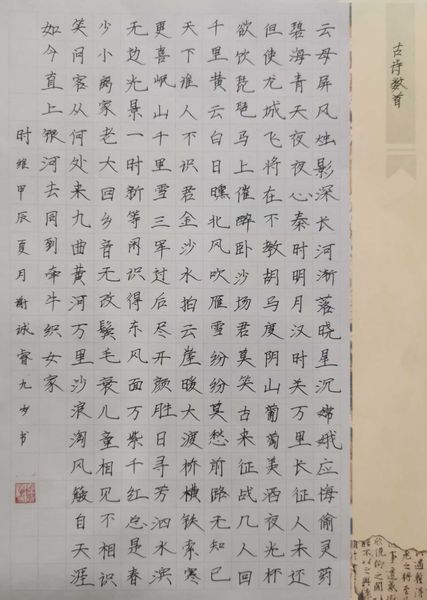 古诗数首
云母屏风烛影深长河渐落晓星沉嫦娥应悔偷灵药
碧海青天夜夜心秦时明月汉时关万里长征人未还
但使龙城飞将在不教胡马度阴山葡萄美酒夜光杯
欲饮琵琶马上催醉卧沙场君莫笑古来征战几人回
千里黄云白日曛北风吹雁雪纷纷莫愁前路无知己
天下谁人不识君金沙水拍云崖暖大渡桥横铁索寒
更喜岷山千里雪三军过后尽开颜胜日寻芳泗水滨
无边光景一时新等闲识得东风面万紫千红总是春
少小离家老大回乡音无改鬓毛衰儿童相见不相识
笑问客从何处来九曲黄河万里沙浪淘风簸自天涯
如今直上银河去同到牵牛织女家
时维甲辰夏月谢睿九岁书